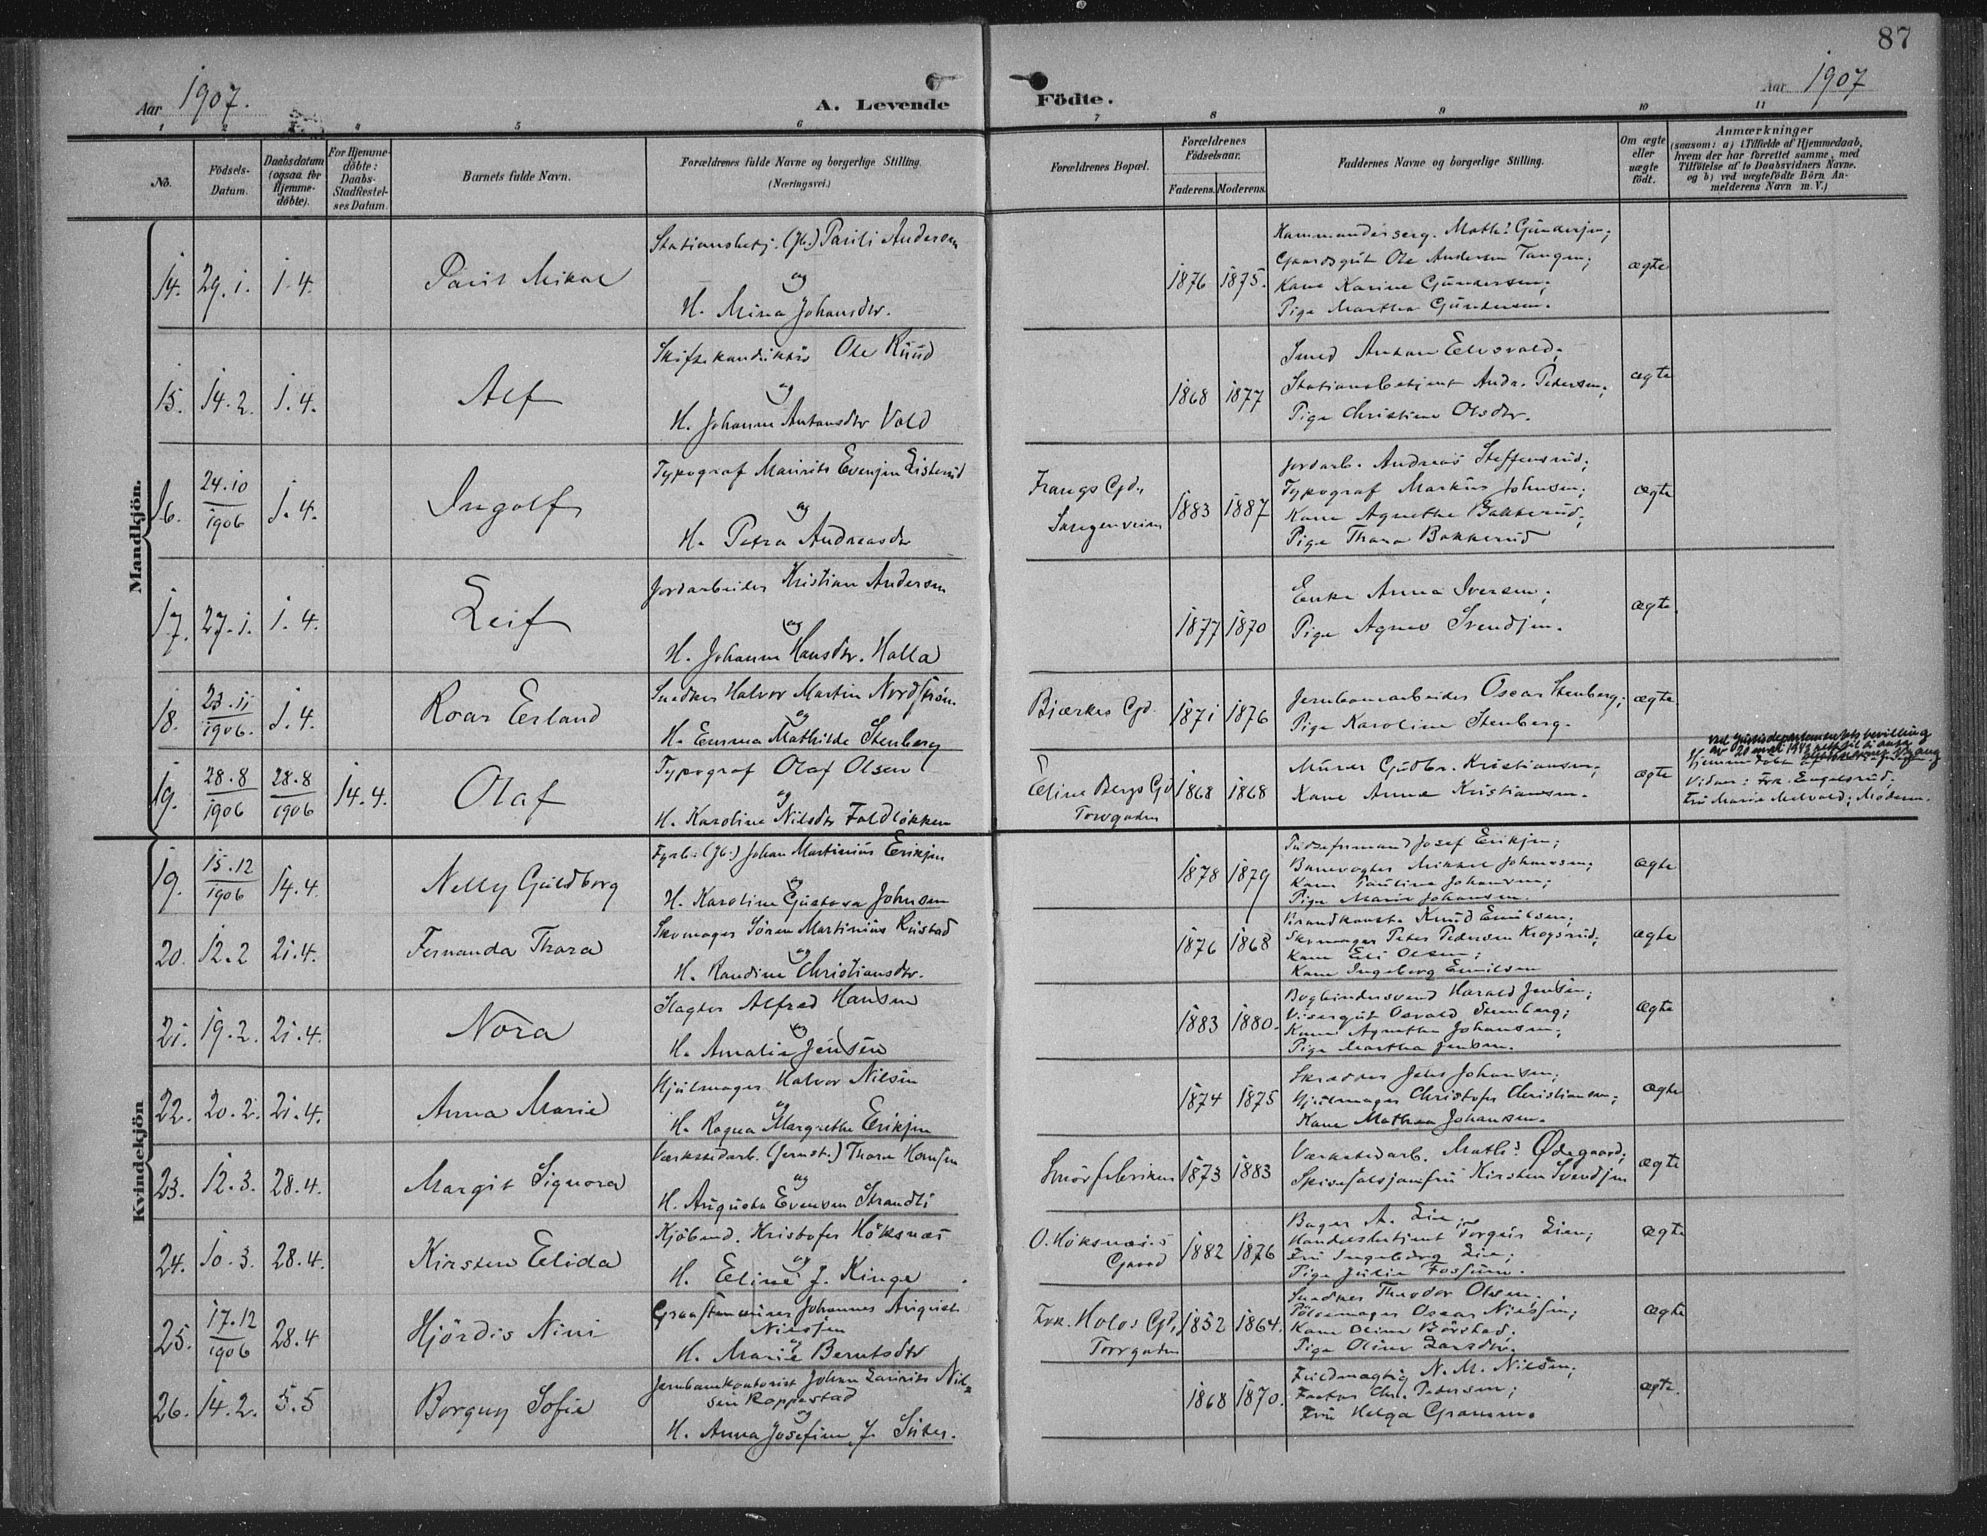 87
Aar 1907.
A. Levende
Födte.
Aar 1907
1 2 3 4 5 6 7 8 9 10 11
No.
Födsels-Datum.
Daabsdatum (ogsaa for Hjemme-döbte).
For Hjemme-döbte: Daabs-Stadfæstel-ses Datum.
Barnets fulde Navn.
Forældrenes fulde Navne og borgerlige Stilling.
(Næringsvei.)
Forældrenes Bopæl.
Forældrenes Födselsaar.
Faderens. Moderens.
Faddernes Navne og borgerlige Stilling.
Om ægte eller uægte födt.
Anmærkninger
(saasom: a) i Tilfælde af Hjemmedaab, hvem der har forrettet samme, med Tilföielse af to Daabsvidners Navne. og b) ved uægtefödte Börn An-melderens Navn m. V.)
Mandkjön.
14. 29.1. 1.4. Paul Mikal
Stationsbetj. (Jb.) Pauli Andersen
og
H. Mina Johansdtr.
1876 1875.
Kommandersørg. Math. Gundersen;
Gaardsgut Ole Andersen Tangen;
Kone Karine Gundersen;
Pige Martha Gundersen.
ægte
15. 14.2. 1.4. Alf
Skiftekonduktör Ole Ruud
og
H. Johanne Antonsdtr Vold
1868 1877
Smed Anton Edvsvold;
Stationsbetjent Andr. Petersen;
Pige Christine Olsdtr.
ægte
16. 24.10 1906 1.4. Ingolf
Typograf Maurits Evensen Listerud
og
H. Petra Andreasdtr
Frangs Gd.
Sangenveien
1883 1887
Jordarb. Andreas Steffensrud;
Typograf Markus Johnsen;
Kone Agnethe Bakkerud;
Pige Thora Bakkerud
ægte
17. 27.1. 1.4. Leif
Jordarbeider Kristian Andersen
og
H. Johanne Hansdtr. Holla
1877 1870
Enke Anna Iversen;
Pige Agnes Svendsen.
ægte.
18. 23.11 1906. 1.4. Roar Erland
Snedker Halvor Martin Nordström
og
H. Emma Mathilde Stenberg
Bjærkes Gd.
1871 1876
Jernbanearbeider Oscar Stenberg;
Pige Karoline Stenberg.
ægte
19. 28.8 1906 28.8 1906 14.4. Olaf
Typograf Olaf Olsen
og
H. Karoline Nilsdtr Faldløkken
Eline Bergs Gd
Torvgaden
1868 1868
Murer Gudbr. Kristiansen;
Kone Anna Kristiansen.
ægte
ved Justisdepartementets bevilling
av 20 mai 1942
Hjemmedöbt af
Vidner: Frk. Engelsrud;
Fru Marie Melvold; Moderen.
Kvindekjön
19. 15.12 1906 14.4. Nelly Guldborg
Fyrb. (Jb.) Johan Martinius Eriksen
og
H. Karoline Gustava Johnsen
1878 1879
Pudseformand Josef Eriksen;
Banevogter Mikkel Johansen;
Kone Pauline Johansen;
Pige Marie Johansen.
ægte
20. 12.2 21.4. Fernanda Thora
Skomager Sören Martinius Rustad
og
H. Randine Christiansdtr.
1876 1868
Brandkonst. Knud Emilsen;
Skomager Peter Pedersen Krogsrud;
Kone Eli Olsen;
Kone Ingeborg Emilsen
ægte
21. 19.2. 21.4. Nora
Slagter Alfred Hansen
og
H. Amalie Jensen
1883 1880.
Bogbindersvend Harald Jensen;
Visergut Osvald Stenberg;
Kone Agnethe Johansen;
Pige Martha Jensen.
ægte
22. 20.2. 21.4. Anna Marie
Hjulmager Halvor Nilsen
og
H. Ragna Margrethe Eriksen
1874 1875
Skrædder Johs Johansen;
Hjulmager Christofer Christiansen;
Kone Mathea Johansen.
ægte
23. 12.3. 28.4. Margit Signora
Værkstedarb. (Jernst.) Thora Hansen
og
H. Augusta Evensen Strandli
Smörfabriken
1873 1883
Værkstedarb. Math. Ødegaard;
Spisesalsjomfru Kirsten Svendsen
ægte
24. 10.3. 28.4. Kirsten Elida
Kjöbmd. Kristofer Höksnæs
og
H. Eline J. Kinge
O. Höksnæs's
Gaard
1882 1876
Bager A. Lie;
Handelsbetjent Torgeir Lien;
Fru Ingeborg Lie;
Pige Julie Fossum.
ægte
25. 17.12 1906 28.4 Hjördis Nini
Graastensmurer Johannes August
Nielsen
og
H. Marie Berntsdtr
Frk. Holos Gd,
Torvgaden
1852 1864.
Snedker Theodor Olsen;
Pölsemager Oscar Nielsen;
Kone Oline Börstad;
Pige Oline Larsdtr.
ægte
26. 14.2. 5.5 Borguy Sofie
Jernbanekontorist Johan Laurits Niel=
sen Koppestad
og
H. Anna Josefine J. Siiter.
1868 1870.
Fuldmægtig N. M. Nilsen;
Faktor Chr. Petersen;
Fru Helga Gramm.
ægte.